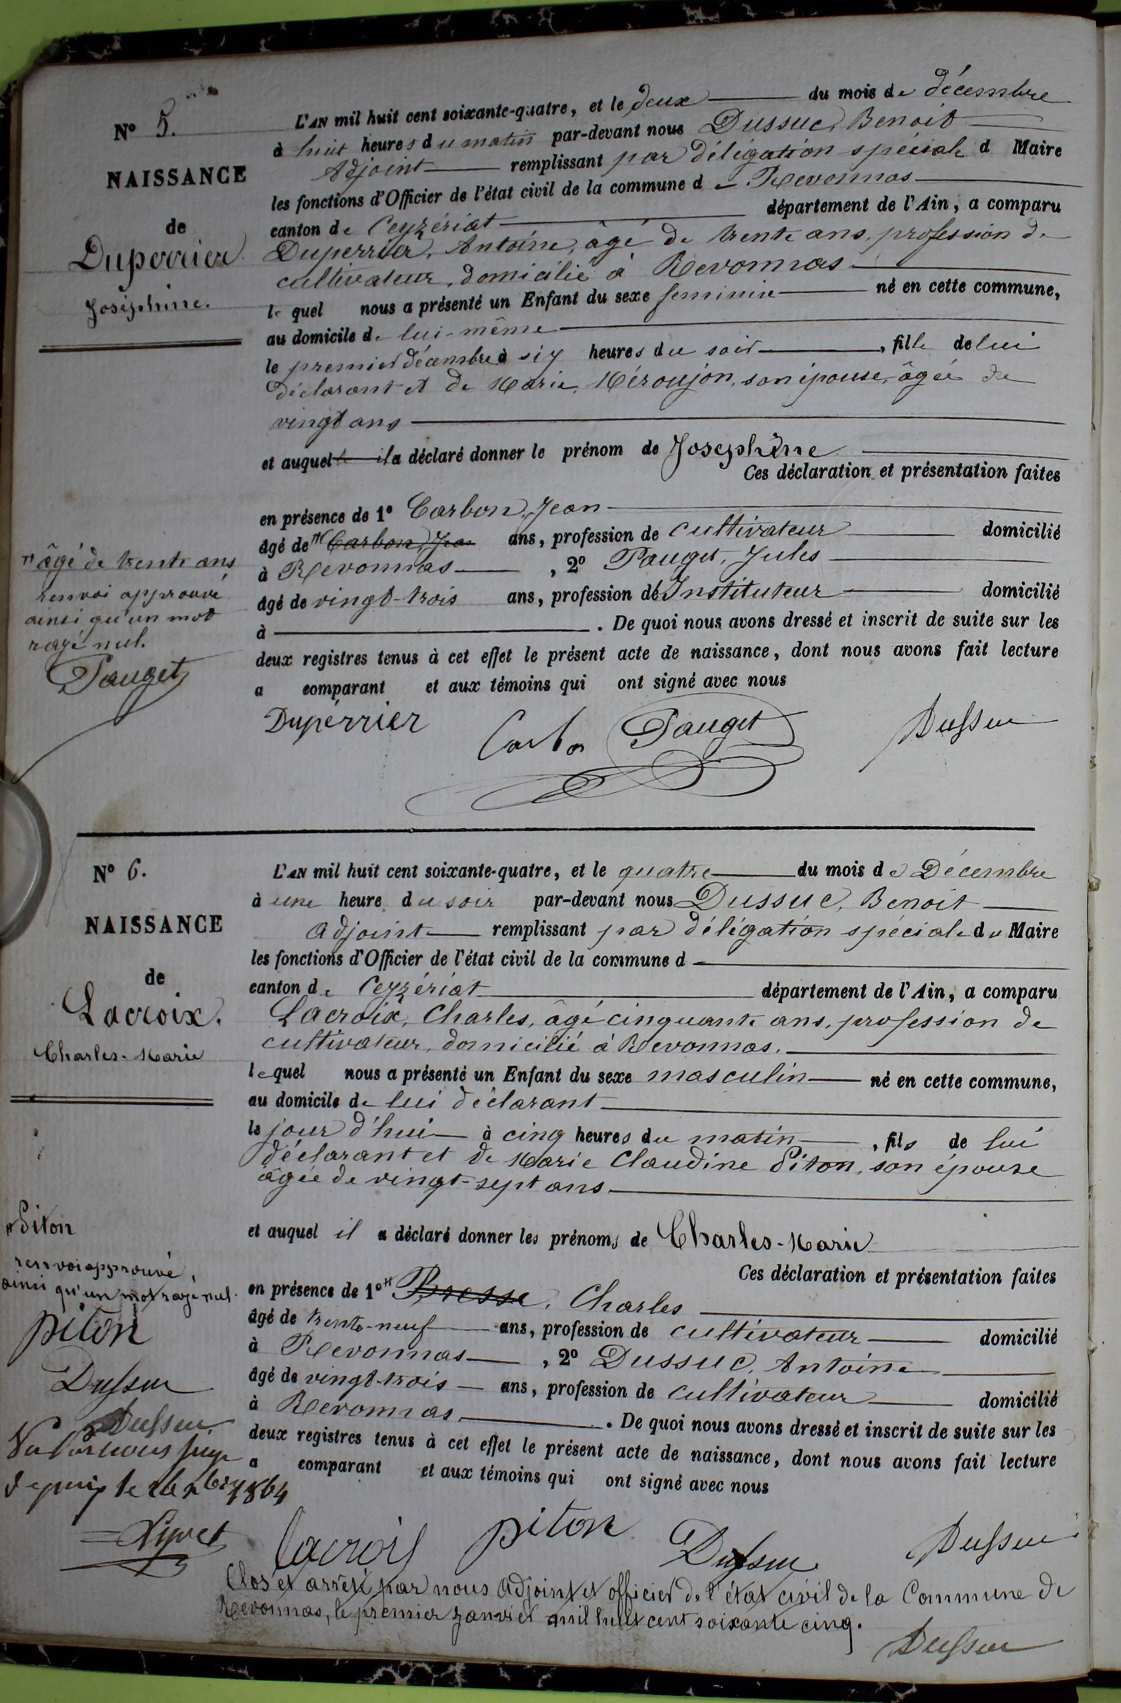 N° 5.
NAISSANCE
de
Duperrier
Joséphine.
L'AN mil huit cent soixante-quatre, et le deux du mois de décembre
à huit heures du matin par-devant nous Dussuc, Benoit
Adjoint remplissant par délégation spéciale d Maire
les fonctions d'Officier de l'état civil de la commune d Revonnas
canton de Ceyzériat département de l'Ain, a comparu
Duperrier, Antoine, âgé de trente ans, profession de
cultivateur, domicilié à Revonnas
le quel nous a présenté un Enfant du sexe feminin né en cette commune,
au domicile de lui-même
le premier décembre à six heures du soir, fille de lui
déclarant et de Marie Méroujon, son épouse, âgée de
vingt ans
et auquel il a déclaré donner le prénom de Joséphine
Ces déclaration et présentation faites
en présence de 1° Carbon, Jean
âgé de Carbon, Jean ans, profession de cultivateur domicilié
à Revonnas, 2° Pauget, Jules
âgé de vingt-trois ans, profession de Instituteur domicilié
à . De quoi nous avons dressé et inscrit de suite sur les
deux registres tenus à cet effet le présent acte de naissance, dont nous avons fait lecture
a comparant et aux témoins qui ont signé avec nous
âgé de trente ans
renvoi approuvé
ainsi qu'un mot
rayé nul.
Pauget
Dupérrier Carbon Pauget Dussuc
N° 6.
NAISSANCE
de
Lacroix.
Charles-Marie
L'AN mil huit cent soixante-quatre, et le quatre du mois de Décembre
à une heure du soir par-devant nous Dussuc, Benoit
adjoint remplissant par délégation spéciale du Maire
les fonctions d'Officier de l'état civil de la commune d
canton de Ceyzériat département de l'Ain, a comparu
Lacroix, Charles, âgé cinquante ans, profession de
cultivateur, domicilié à Revonnas,
lequel nous a présenté un Enfant du sexe masculin né en cette commune,
au domicile de lui déclarant
le jour d'hui à cinq heures du matin, fils de lui
déclarant et de Marie Claudine Piton, son épouse
âgée de vingt-sept ans
et auquel il a déclaré donner les prénoms de Charles-Marie
Ces déclaration et présentation faites
en présence de 1° Bresse, Charles
âgé de trente-neuf ans, profession de cultivateur domicilié
à Revonnas, 2° Dussuc, Antoine
âgé de vingt-trois ans, profession de cultivateur domicilié
à Revonnas. De quoi nous avons dressé et inscrit de suite sur les
deux registres tenus à cet effet le présent acte de naissance, dont nous avons fait lecture
a comparant et aux témoins qui ont signé avec nous
Piton
renvoi approuvé,
ainsi qu'un mot rayé nul.
piton
Dussuc
Dussuc
Vu par nous juge
1864
Lacroix piton Dussuc Dussuc
Clos et arrêté par nous adjoint et officier de l'état civil de la Commune de
Revonnas, le premier janvier mil huit cent soixante cinq.
Dussuc